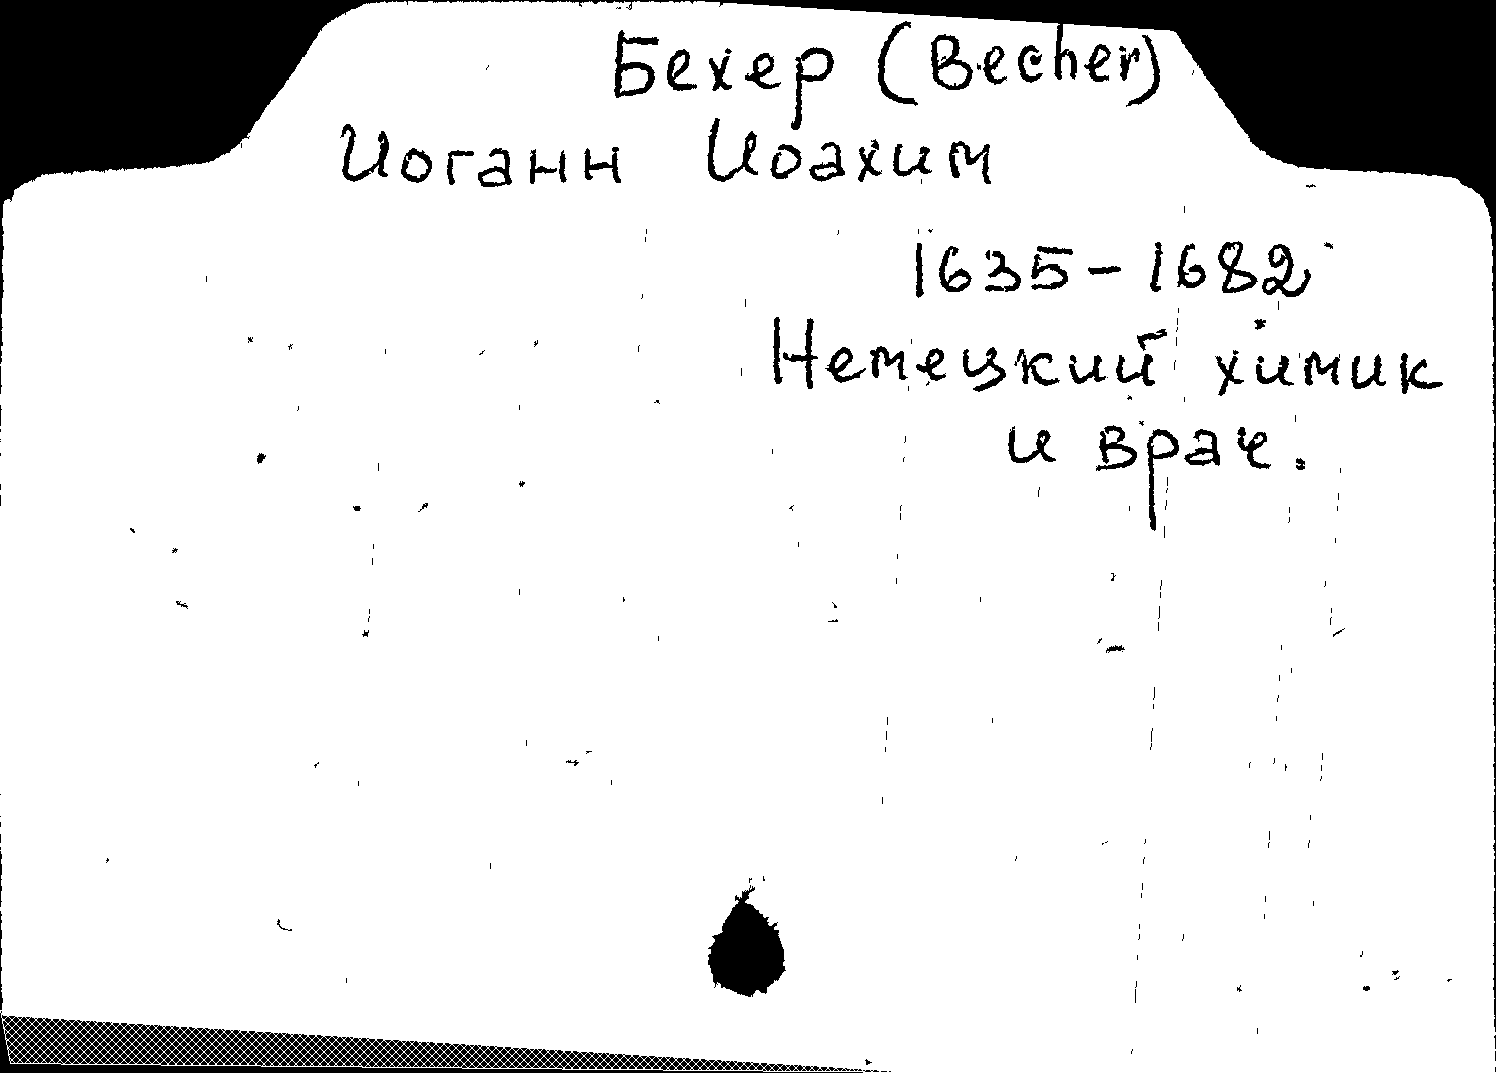 Бехер (Becher)
Иоганн Иоахим
1635-1682
Немецкий химик
и врач.